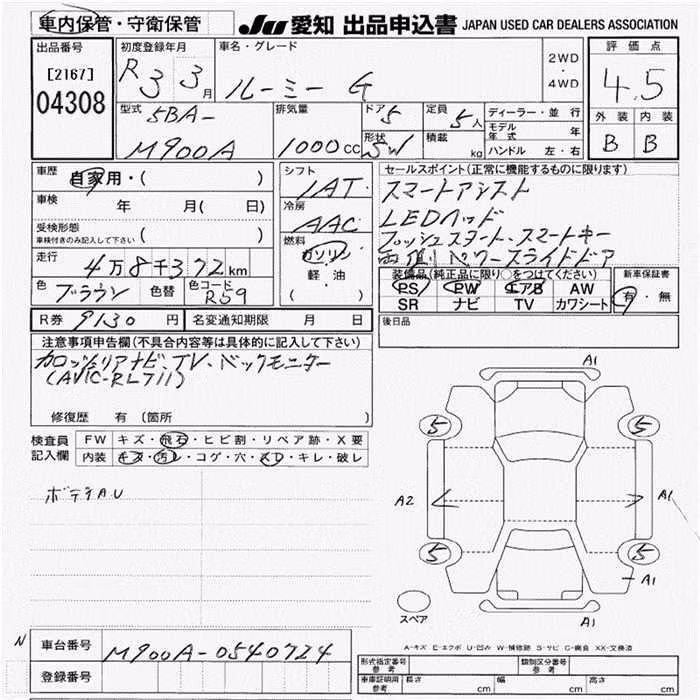 車内保管・守衛保管
JU 愛知 出品申込書 JAPAN USED CAR DEALERS ASSOCIATION
出品番号
[2167]
04308
初度登録年月
R3 3月
車名・グレード
ルーミー G
2WD
・
4WD
評価点
4.5
外装 内装
B B
型式
5BA-
M900A
排気量
1000cc
ドア 5
形状 SW
定員 5人
積載 kg
ディーラー・並行
モデル年式 年
ハンドル 左・右
車歴
自家用・( )
車検
年 月( 日)
受検形態
車検付きのみ記入して下さい ( )
走行
4万8千372km
色 ブラウン 色替 色コード R59
シフト
IAT
冷房
AAC
燃料
ガソリン
軽油
( )
セールスポイント(正常に機能するものに限ります)
スマートアシスト
LEDヘッド
プッシュスタート、スマートキー
両側パワースライドドア
装備品(純正品に限り○をつけてください)
PS PW エアB AW
SR ナビ TV カワシート
新車保証書
有・無
R券 9130円 名変通知期限 月 日
後日品
注意事項申告欄(不具合内容等は具体的に記入して下さい)
カロッツェリアナビ、TV、バックモニター
(AVIC-RL711)
修復歴 有 (箇所 )
検査員
記入欄
FW キズ・飛石・ヒビ割・リペア跡・X要
内装 キズ・汚レ・コゲ・穴・スレ・キレ・破レ
ボデｲAU
A1
5 5
A2 A1
5 5
A1
A1
スペア
A-キズ E-エクボ U-凹み W-補修跡 S-サビ C-腐食 XX-交換済
N
車台番号 M900A-0540724
登録番号
形式指定番号 参考 類別区分番号 参考
車庫証明用 参考 長さ cm 幅 cm 高さ cm